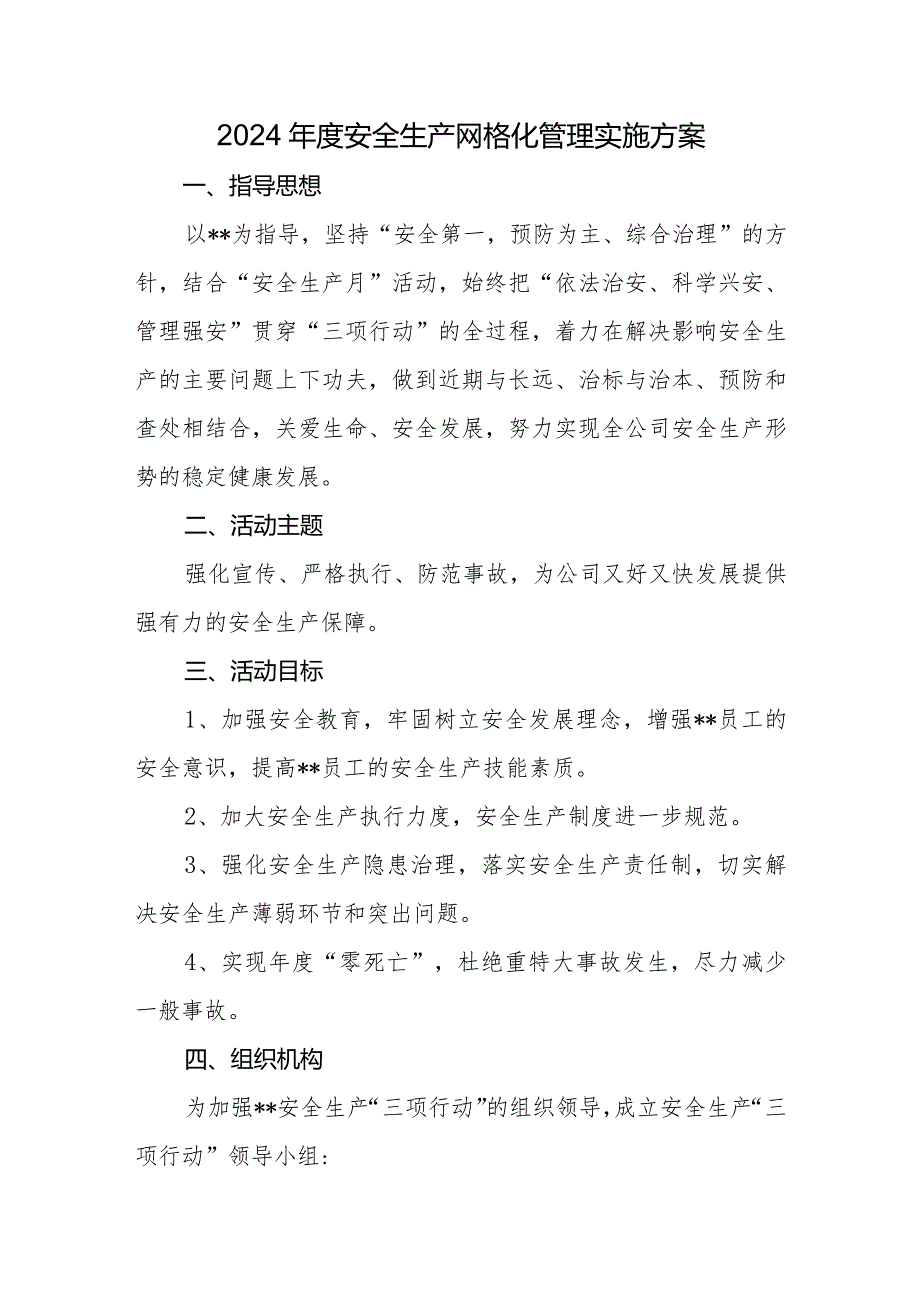 2024 年度安全生产网格化管理实施方案
一、指导思想
以**为指导，坚持“安全第一，预防为主、综合治理”的方
针，结合“安全生产月”活动，始终把“依法治安、科学兴安、
管理强安”贯穿“三项行动”的全过程，着力在解决影响安全生
产的主要问题上下功夫，做到近期与长远、治标与治本、预防和
查处相结合，关爱生命、安全发展，努力实现全公司安全生产形
势的稳定健康发展。
二、活动主题
强化宣传、严格执行、防范事故，为公司又好又快发展提供
强有力的安全生产保障。
三、活动目标
1、加强安全教育，牢固树立安全发展理念，增强**员工的
安全意识，提高**员工的安全生产技能素质。
2、加大安全生产执行力度，安全生产制度进一步规范。
3、强化安全生产隐患治理，落实安全生产责任制，切实解
决安全生产薄弱环节和突出问题。
4、实现年度“零死亡”，杜绝重特大事故发生，尽力减少
一般事故。
四、组织机构
为加强**安全生产“三项行动”的组织领导,成立安全生产“三
项行动”领导小组: